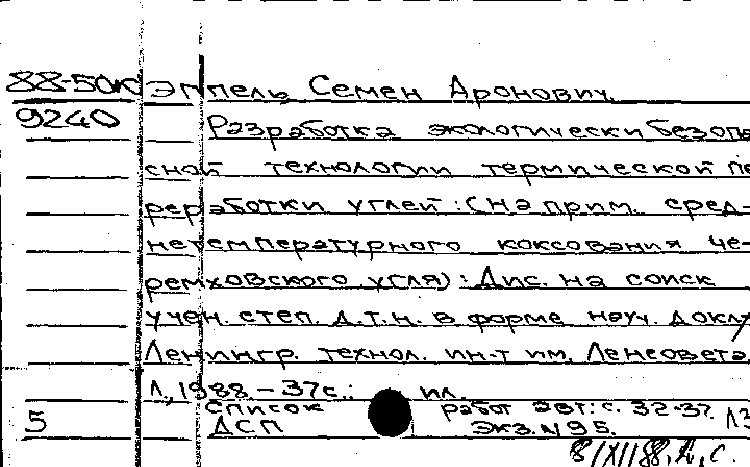 88-50к Эппель Семен Аронович.
9240 Разработка экологически безопа
сной технологии термической пе
реработки углей: (на прим. сред-
нетемпературного коксования че-
ремховского угля): Дис. на соиск
учен. степ. д.т.н. в форме науч. докл
Ленингр. технол. ин-т им. Ленсовета
Л, 1988. - 37с.: ил.
список работ авт: с. 32-37.
5 ДСП Экз. N 95.
8/XII 88,